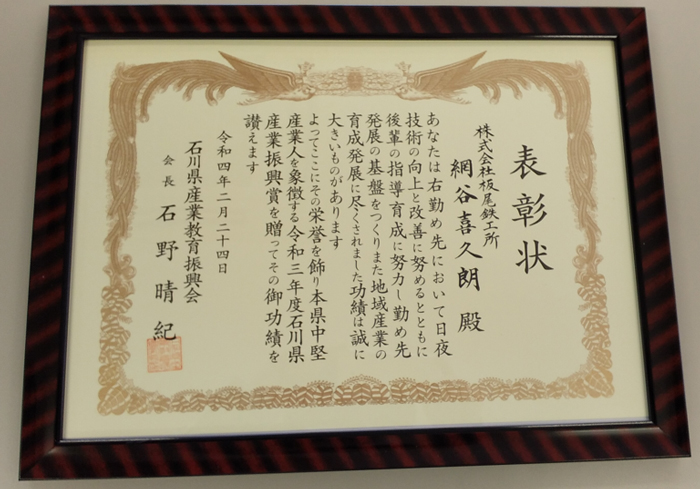 表彰状
株式会社板尾鉄工所
網谷喜久朗 殿
あなたは右勤め先において日夜
技術の向上と改善に努めるとともに
後輩の指導育成に努力し勤め先
発展の基盤をつくりまた地域産業の
育成発展に尽くされました功績は誠に
大きいものがあります
よってここにその栄誉を飾り本県中堅
産業人を象徴する令和三年度石川県
産業振興賞を贈ってその御功績を
讃えます
令和四年二月二十四日
石川県産業教育振興会
会長 石野晴紀